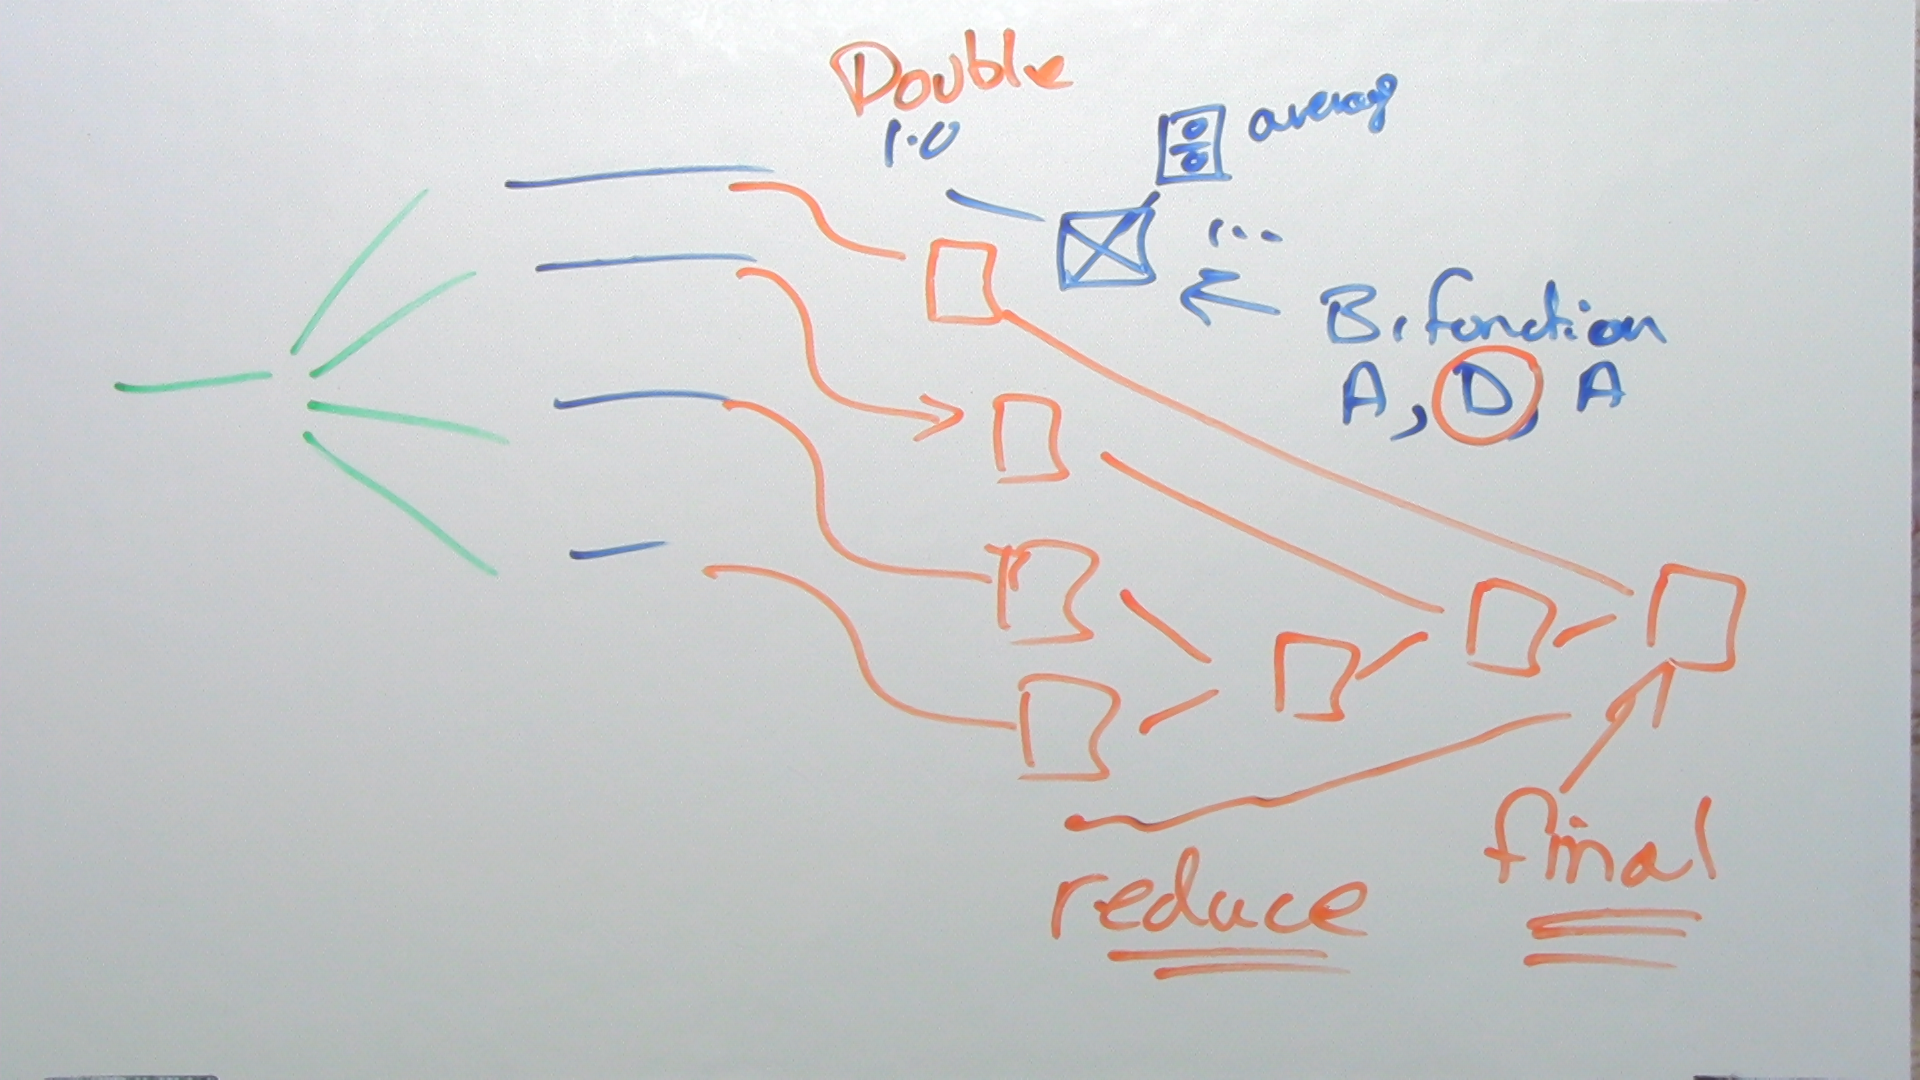 Double
1.0
average
...
Bifunction
A, D, A
reduce
final